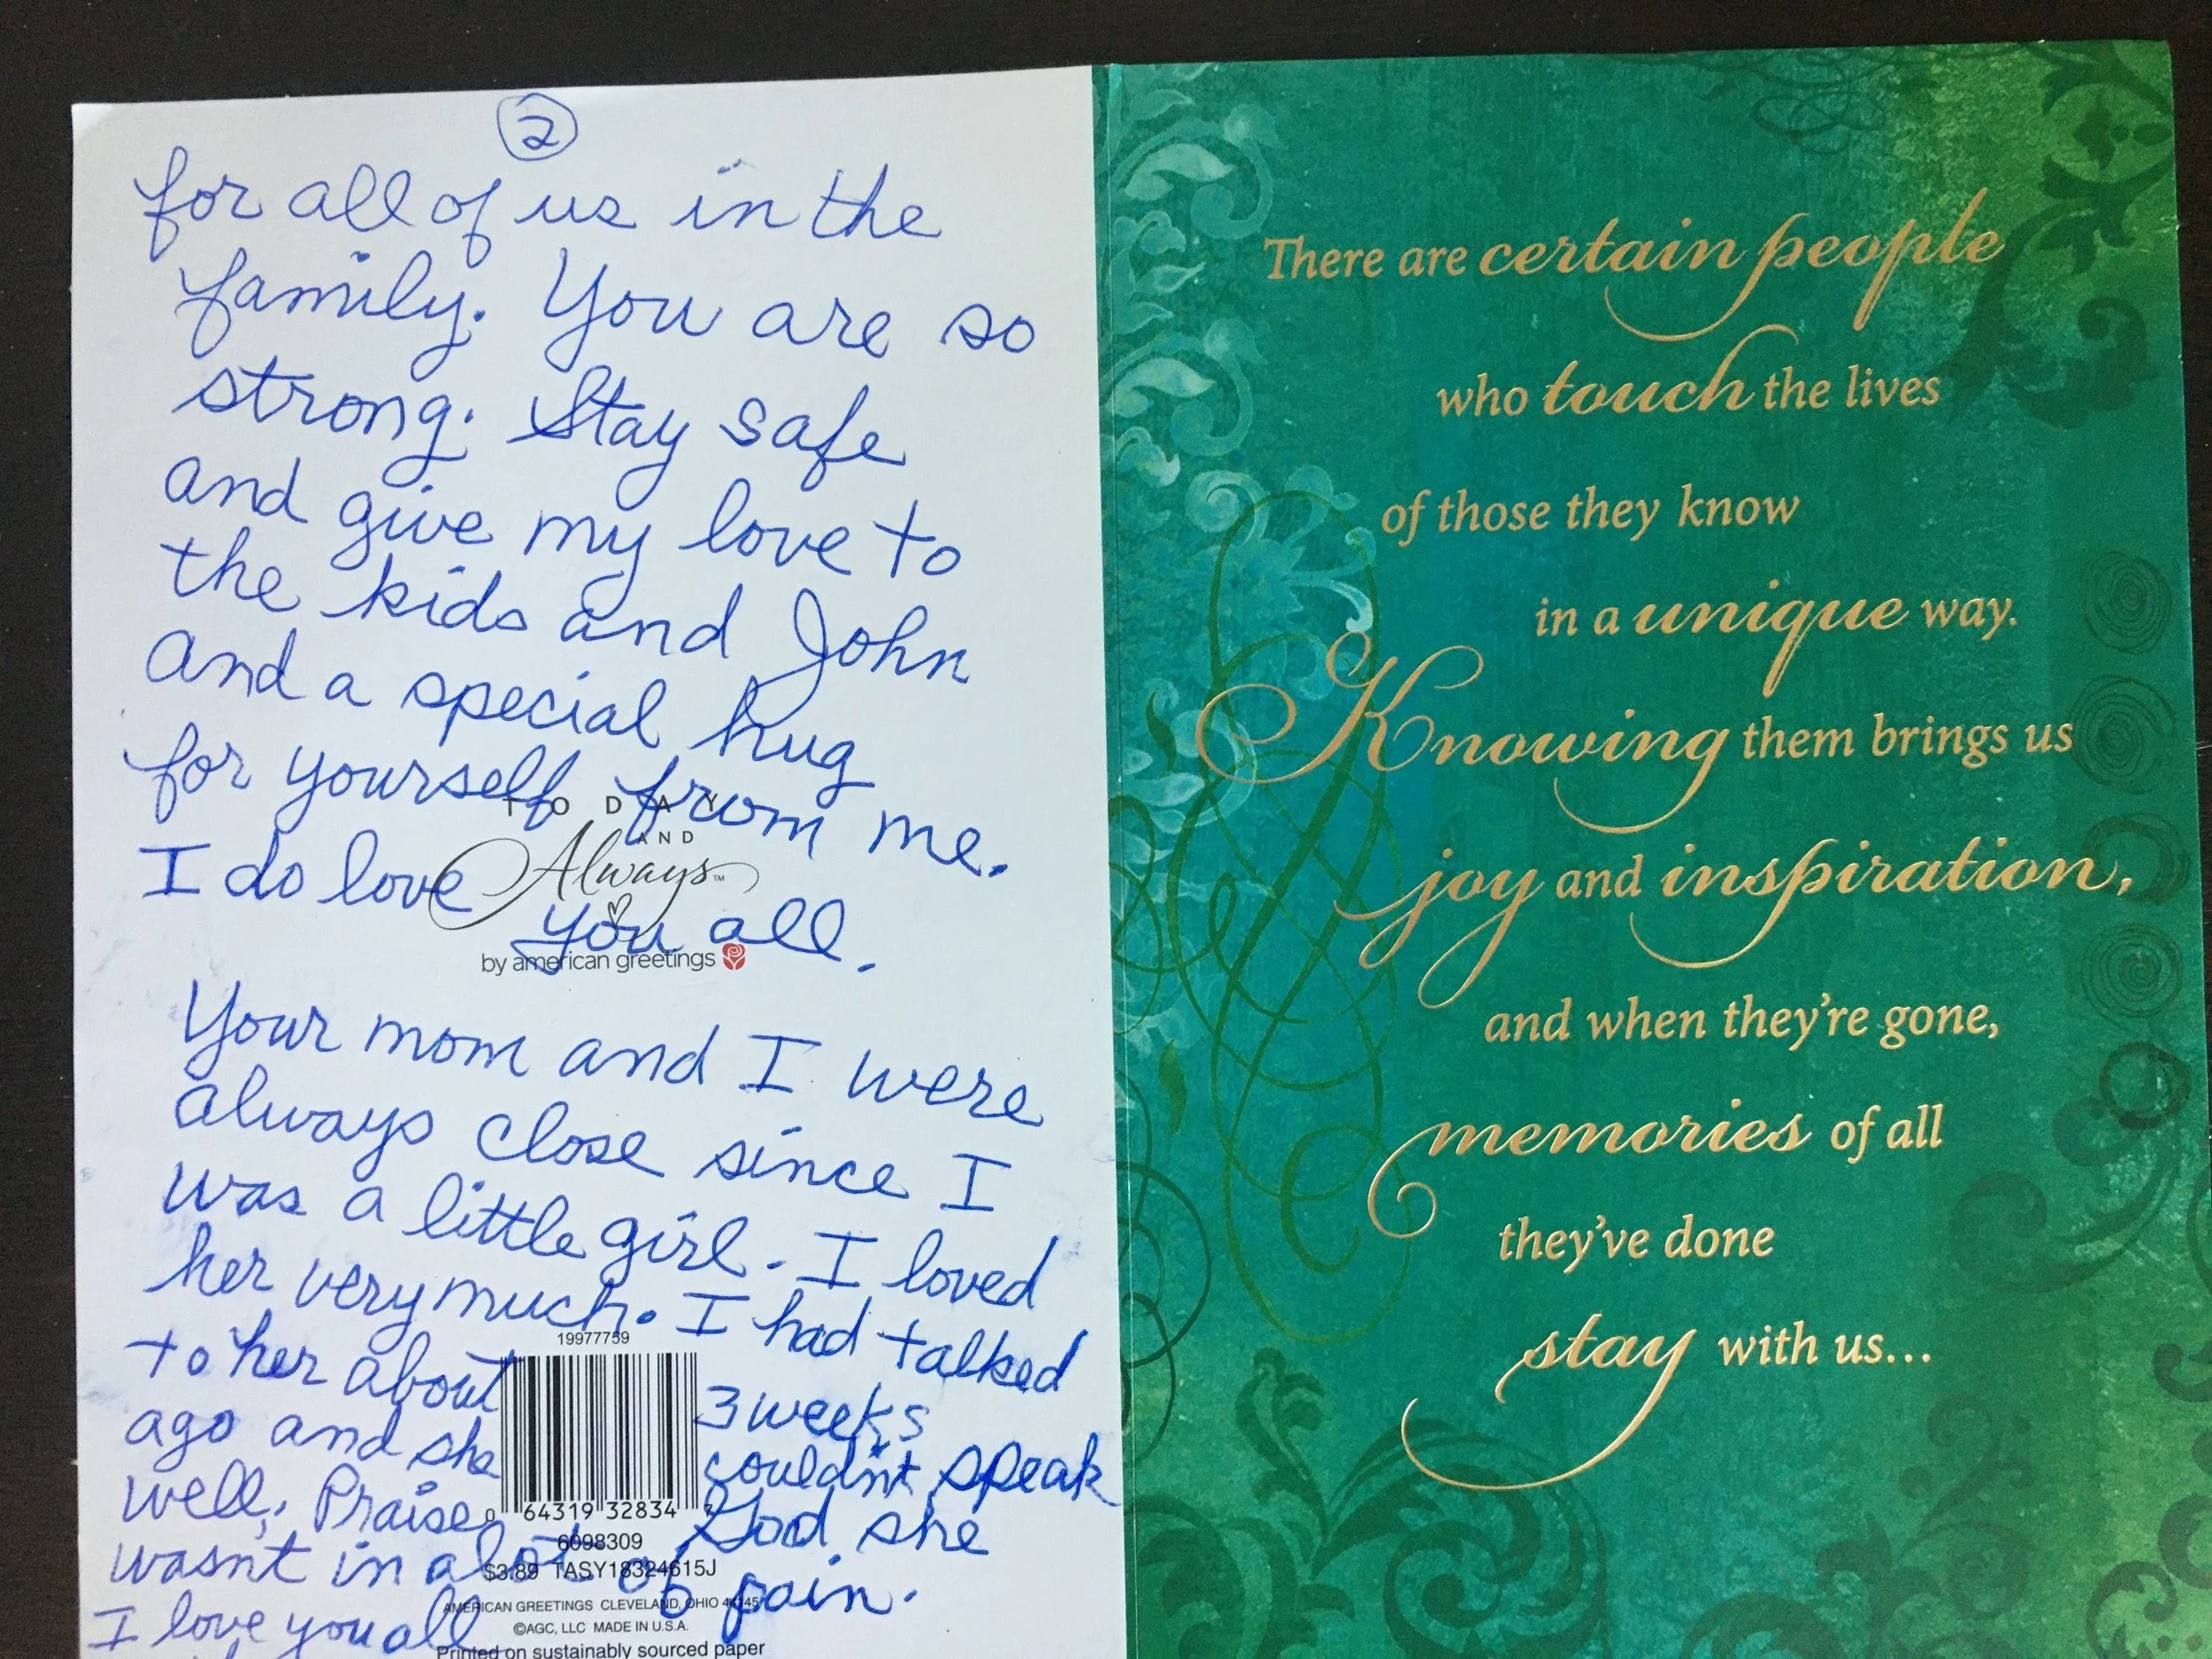 2
for all of us in the
family. You are so
strong. Stay safe
and give my love to
the kids and John
and a special hug
for yourself from me.
I do love
you all.
TODAY
AND
Always™
by american greetings
Your mom and I were
always close since I
was a little girl. I loved
her very much. I had talked
to her about 3 weeks
ago and she couldn't speak
well. Praise God she
wasn't in a lot of pain.
I love you all
19977759
0 64319 32834 7
6098309
$3.89 TASY18324615J
AMERICAN GREETINGS CLEVELAND, OHIO 44145
©AGC, LLC MADE IN U.S.A.
Printed on sustainably sourced paper
There are certain people
who touch the lives
of those they know
in a unique way.
Knowing them brings us
joy and inspiration,
and when they're gone,
memories of all
they've done
stay with us...